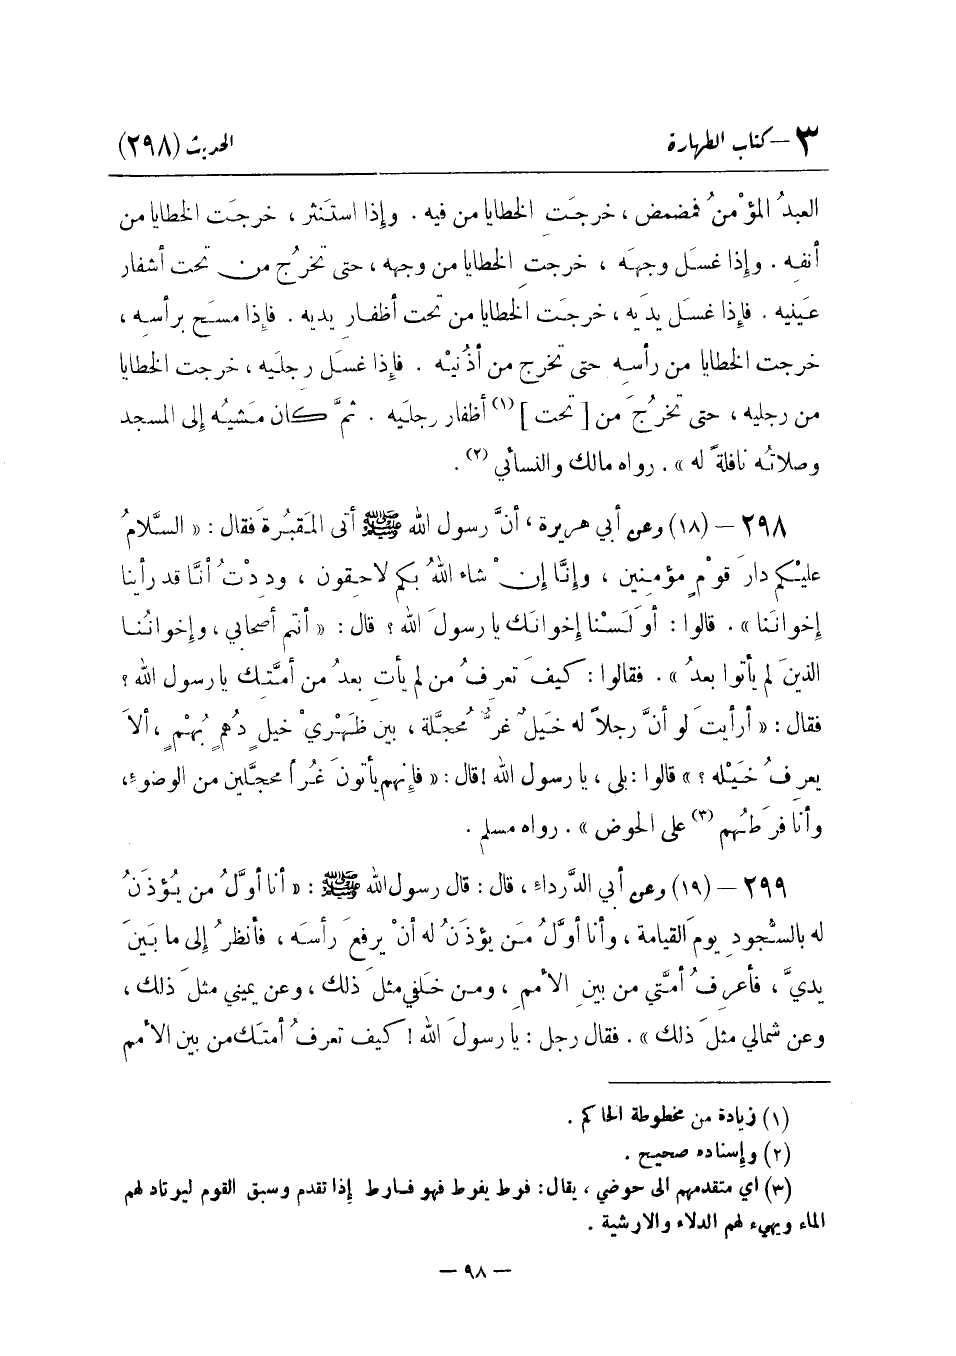 ٣ – كتاب الطهارة
الحديث (٢٩٨)
العبدُ المؤْمنُ فمضمض ، خرجَت الخطايا من فيه . وإذا استَنثر ، خرجَت الخطايا من
أنفِه . وإذا غسَل وجهَه ، خرجت الخطايا من وجهه ، حتى تخرُج من تحت أشفار
عَينيه . فإذا غسَل يدَيه ، خرجَت الخطايا من تحت أظفار يديه . فإذا مسَح برأسِه ،
خرجت الخطايا من رأسِه حتى تخرج من أذُنيْه . فإذا غسَل رجلَيه ، خرجت الخطايا
من رجليه ، حتى تخرُجَ من [ تحت ] (١) أظفار رجلَيه . ثمَّ كان مَشيُه إلى المسجد
وصلاتُه نافلةً له » . رواه مالك والنسائي (٢) .
٢٩٨ – (١٨) وعن أبي هريرة ، أنَّ رسول الله ﷺ أتى المَقبُرةَ فقال : « السَّلامُ
عليْكم دارَ قوْمٍ مؤمنين ، وإنَّا إنْ شاء اللهُ بكم لاحِقون ، وددْتُ أنَّا قد رأينا
إخوانَنا » . قالوا : أوَلَسْنا إخوانَك يا رسولَ الله ؟ قال : « أنتم أصحابي ، وإخوانُنا
الذينَ لم يأتوا بعدُ » . فقالوا : كيفَ تعرفُ من لم يأتِ بعدُ من أمَّتِك يا رسول الله ؟
فقال : « أرأيتَ لو أنَّ رجلاً له خَيلٌ غرٌّ مُحجَّلة ، بين ظَهْريْ خيلٍ دُهمٍ بُهْمٍ ، ألاَ
يعرفُ خَيْلَه ؟ » قالوا : بلى ، يا رسول الله ! قال : « فإنهم يأتونَ غُراً محجَّلين من الوضوءِ ،
وأنا فرَطُهم (٣) على الحوض » . رواه مسلم .
٢٩٩ – (١٩) وعن أبي الدَّرداءِ ، قال : قال رسول الله ﷺ : « أنا أوَّلُ من يُؤذَنُ
له بالسُّجودِ يومَ القيامة ، وأنا أوَّلُ مَن يؤذَنُ له أنْ يرفعَ رأسَه ، فأنظرُ إلى ما بَينَ
يديَّ ، فأعرِفُ أمتَّي من بينِ الأممِ ، ومن خلفي مثلَ ذلك ، وعن يميني مثلَ ذلك ،
وعن شمالي مثلَ ذلك » . فقال رجل : يا رسولَ الله ! كيف تعرفُ أمتَك من بين الأمم
(١) زيادة من مخطوطة الحاكم .
(٢) وإسناده صحيح .
(٣) اي متقدمهم الى حوضي ، يقال : فرط يفرط فهو فارط إذا تقدم وسبق القوم ليرتاد لهم
الماء ويهيء لهم الدلاء والارشية .
– ٩٨ –